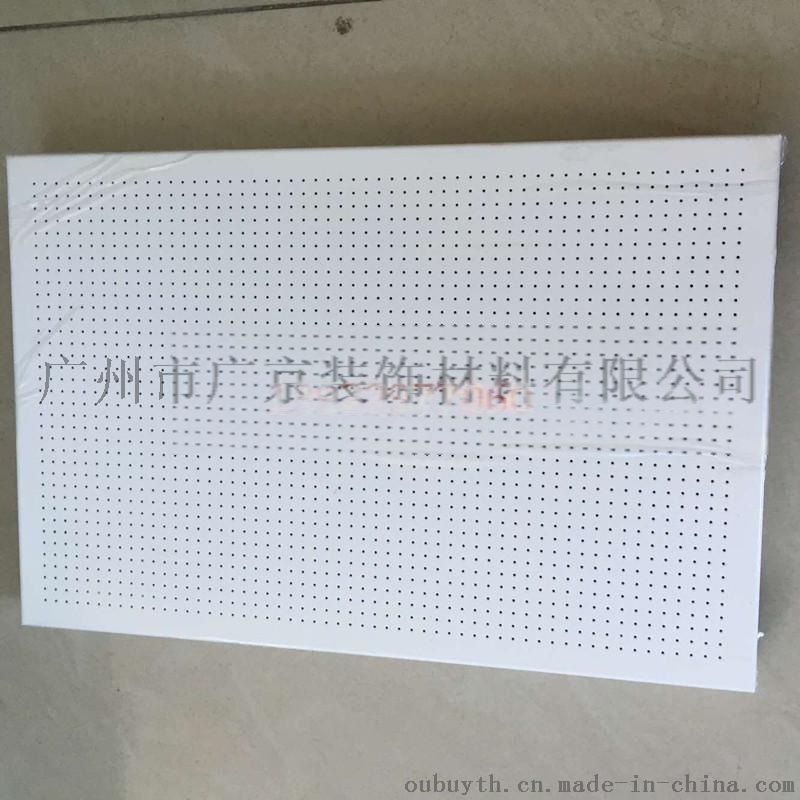 广州市广京装饰材料有限公司
oubuyth.cn.made-in-china.com